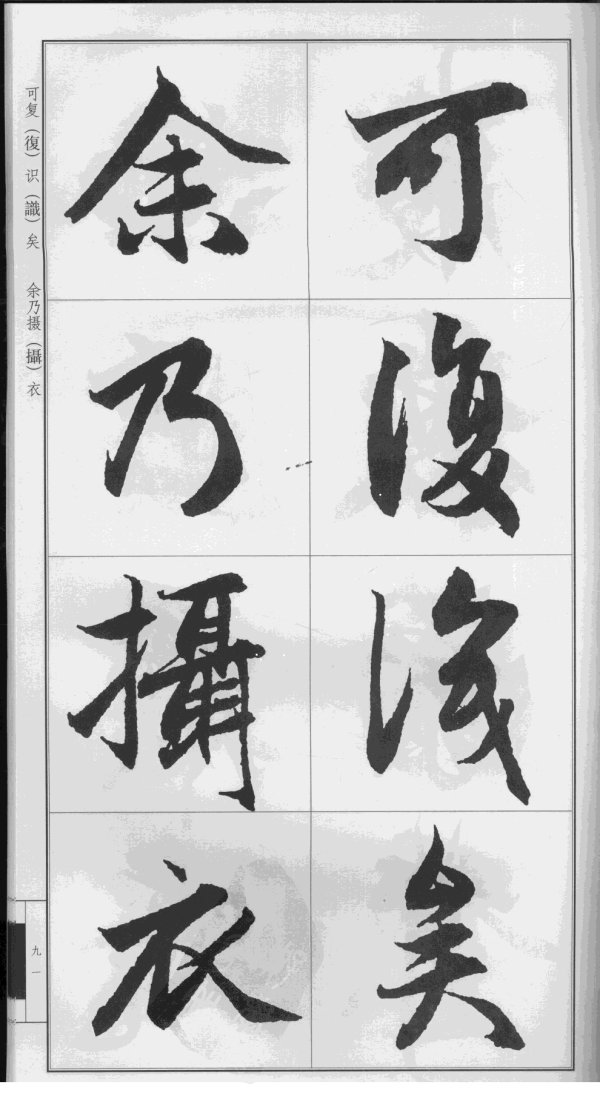 可復識矣
余乃攝衣
可复（復）识（識）矣　余乃摄（攝）衣
九一